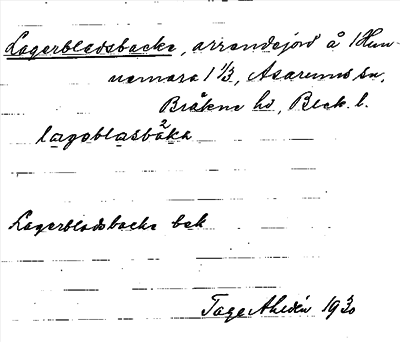 Lagerbladsbacke, arrendejord å Hun-
nemara 1 1/3, Asarums sn,
Bräkne hd, Blek. l.
lagəblasbàka
Lagerbladsbacke bek
Tage Ahldén 1930